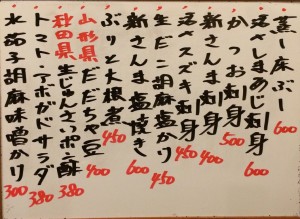 蒸し床ぶし 600
活〆しまあじ刺身 600
かつお刺身 500
活〆スズキ刺身 400
新さんま刺身 450
生だこ胡麻塩かり 450
新さんま塩焼き 600
ぶりと大根煮 450
山形県だだちゃ豆 400
秋田県生じゅんさいポン酢 380
トマトアボガドサラダ 380
水茄子胡麻味噌かり 300